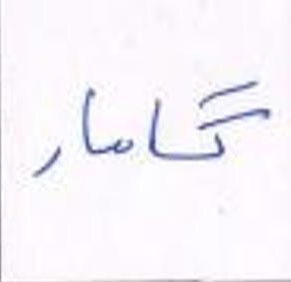 گامار